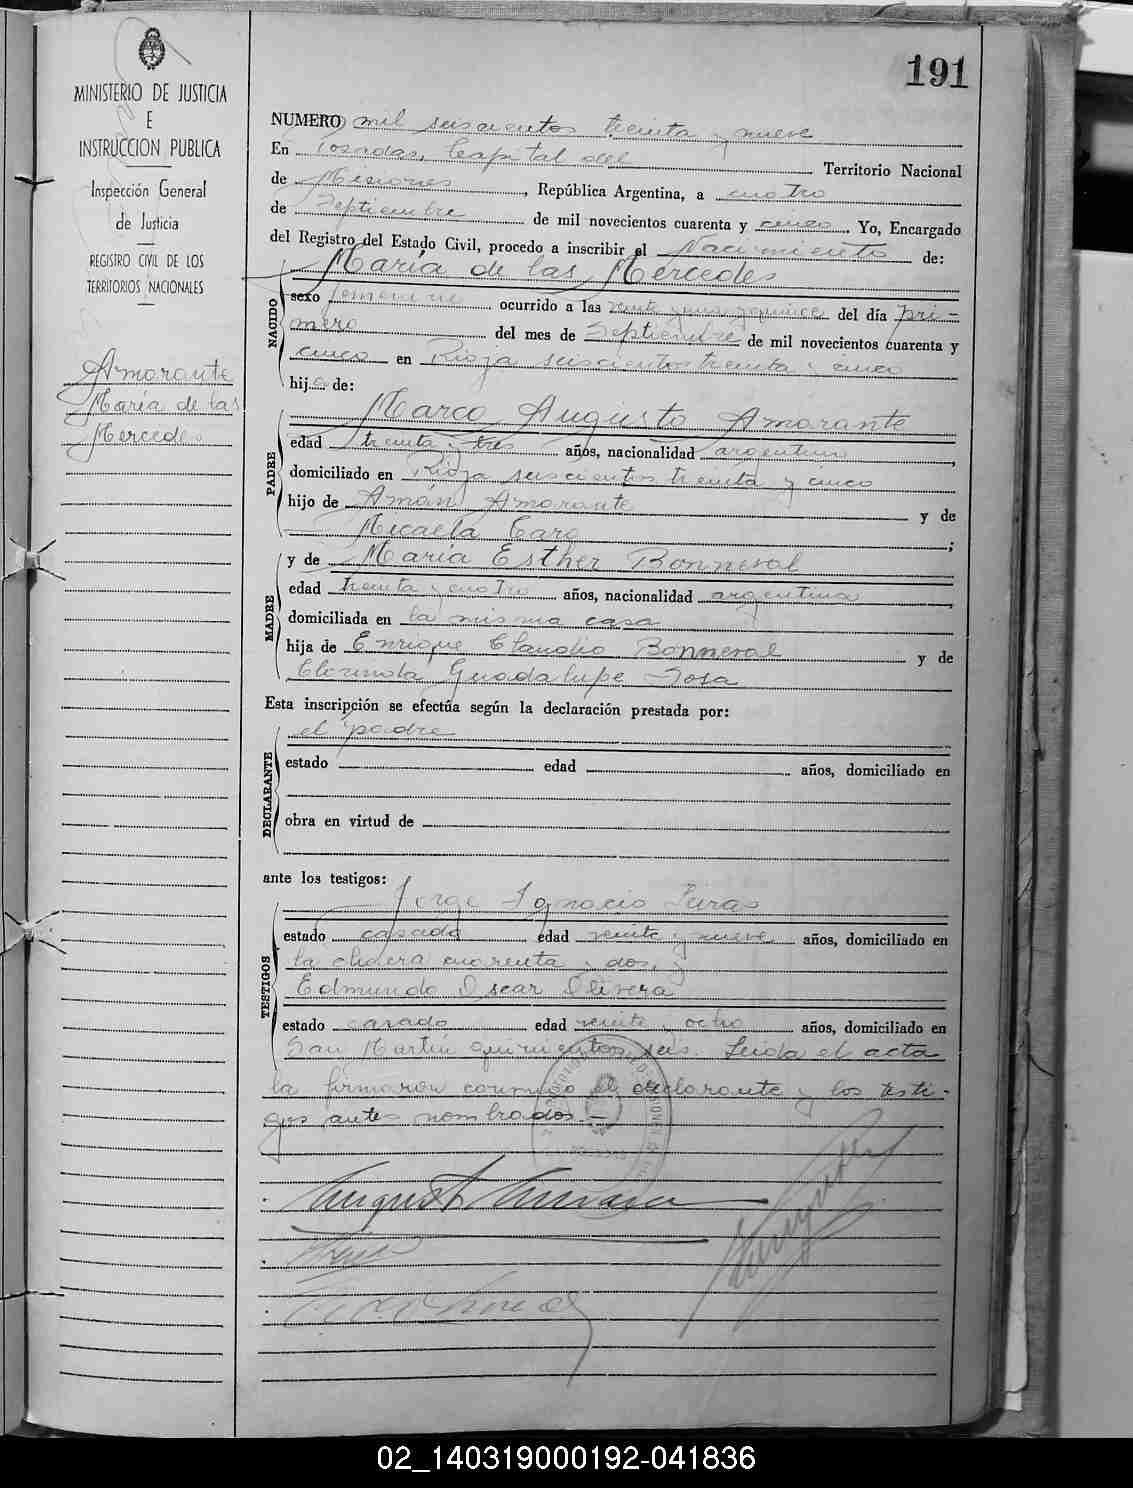 191
MINISTERIO DE JUSTICIA
E
INSTRUCCION PUBLICA
Inspección General
de Justicia
REGISTRO CIVIL DE LOS
TERRITORIOS NACIONALES
Amarante
María de las
Mercedes
NUMERO mil seiscientos treinta y nueve
En Posadas, Capital del Territorio Nacional
de Misiones, República Argentina, a cuatro
de Septiembre de mil novecientos cuarenta y cinco. Yo, Encargado
del Registro del Estado Civil, procedo a inscribir el Nacimiento de:
María de las Mercedes
NACIDO
sexo femenino ocurrido a las veinte y una y quince del día pri-
mero del mes de Septiembre de mil novecientos cuarenta y
cinco en Rioja seiscientos treinta y cinco
hija de:
PADRE
Marco Augusto Amarante
edad treinta y tres años, nacionalidad argentino,
domiciliado en Rioja seiscientos treinta y cinco
hijo de Amán Amarante y de
Micaela Caro;
MADRE
y de María Esther Bonneval
edad treinta y cuatro años, nacionalidad argentina,
domiciliada en la misma casa
hija de Enrique Claudio Bonneval y de
Clorinda Guadalupe Sosa
Esta inscripción se efectúa según la declaración prestada por:
el padre
DECLARANTE
estado edad años, domiciliado en
obra en virtud de
ante los testigos:
Jorge Ignacio
TESTIGOS
estado casado edad veinte y nueve años, domiciliado en
la cuarenta y dos, y
Edmundo Oscar Olivera
estado casado edad veinte y ocho años, domiciliado en
San Martín quinientos seis. Leida el acta
la firmaron conmigo el declarante y los testi-
gos antes nombrados.—
02_140319000192-041836